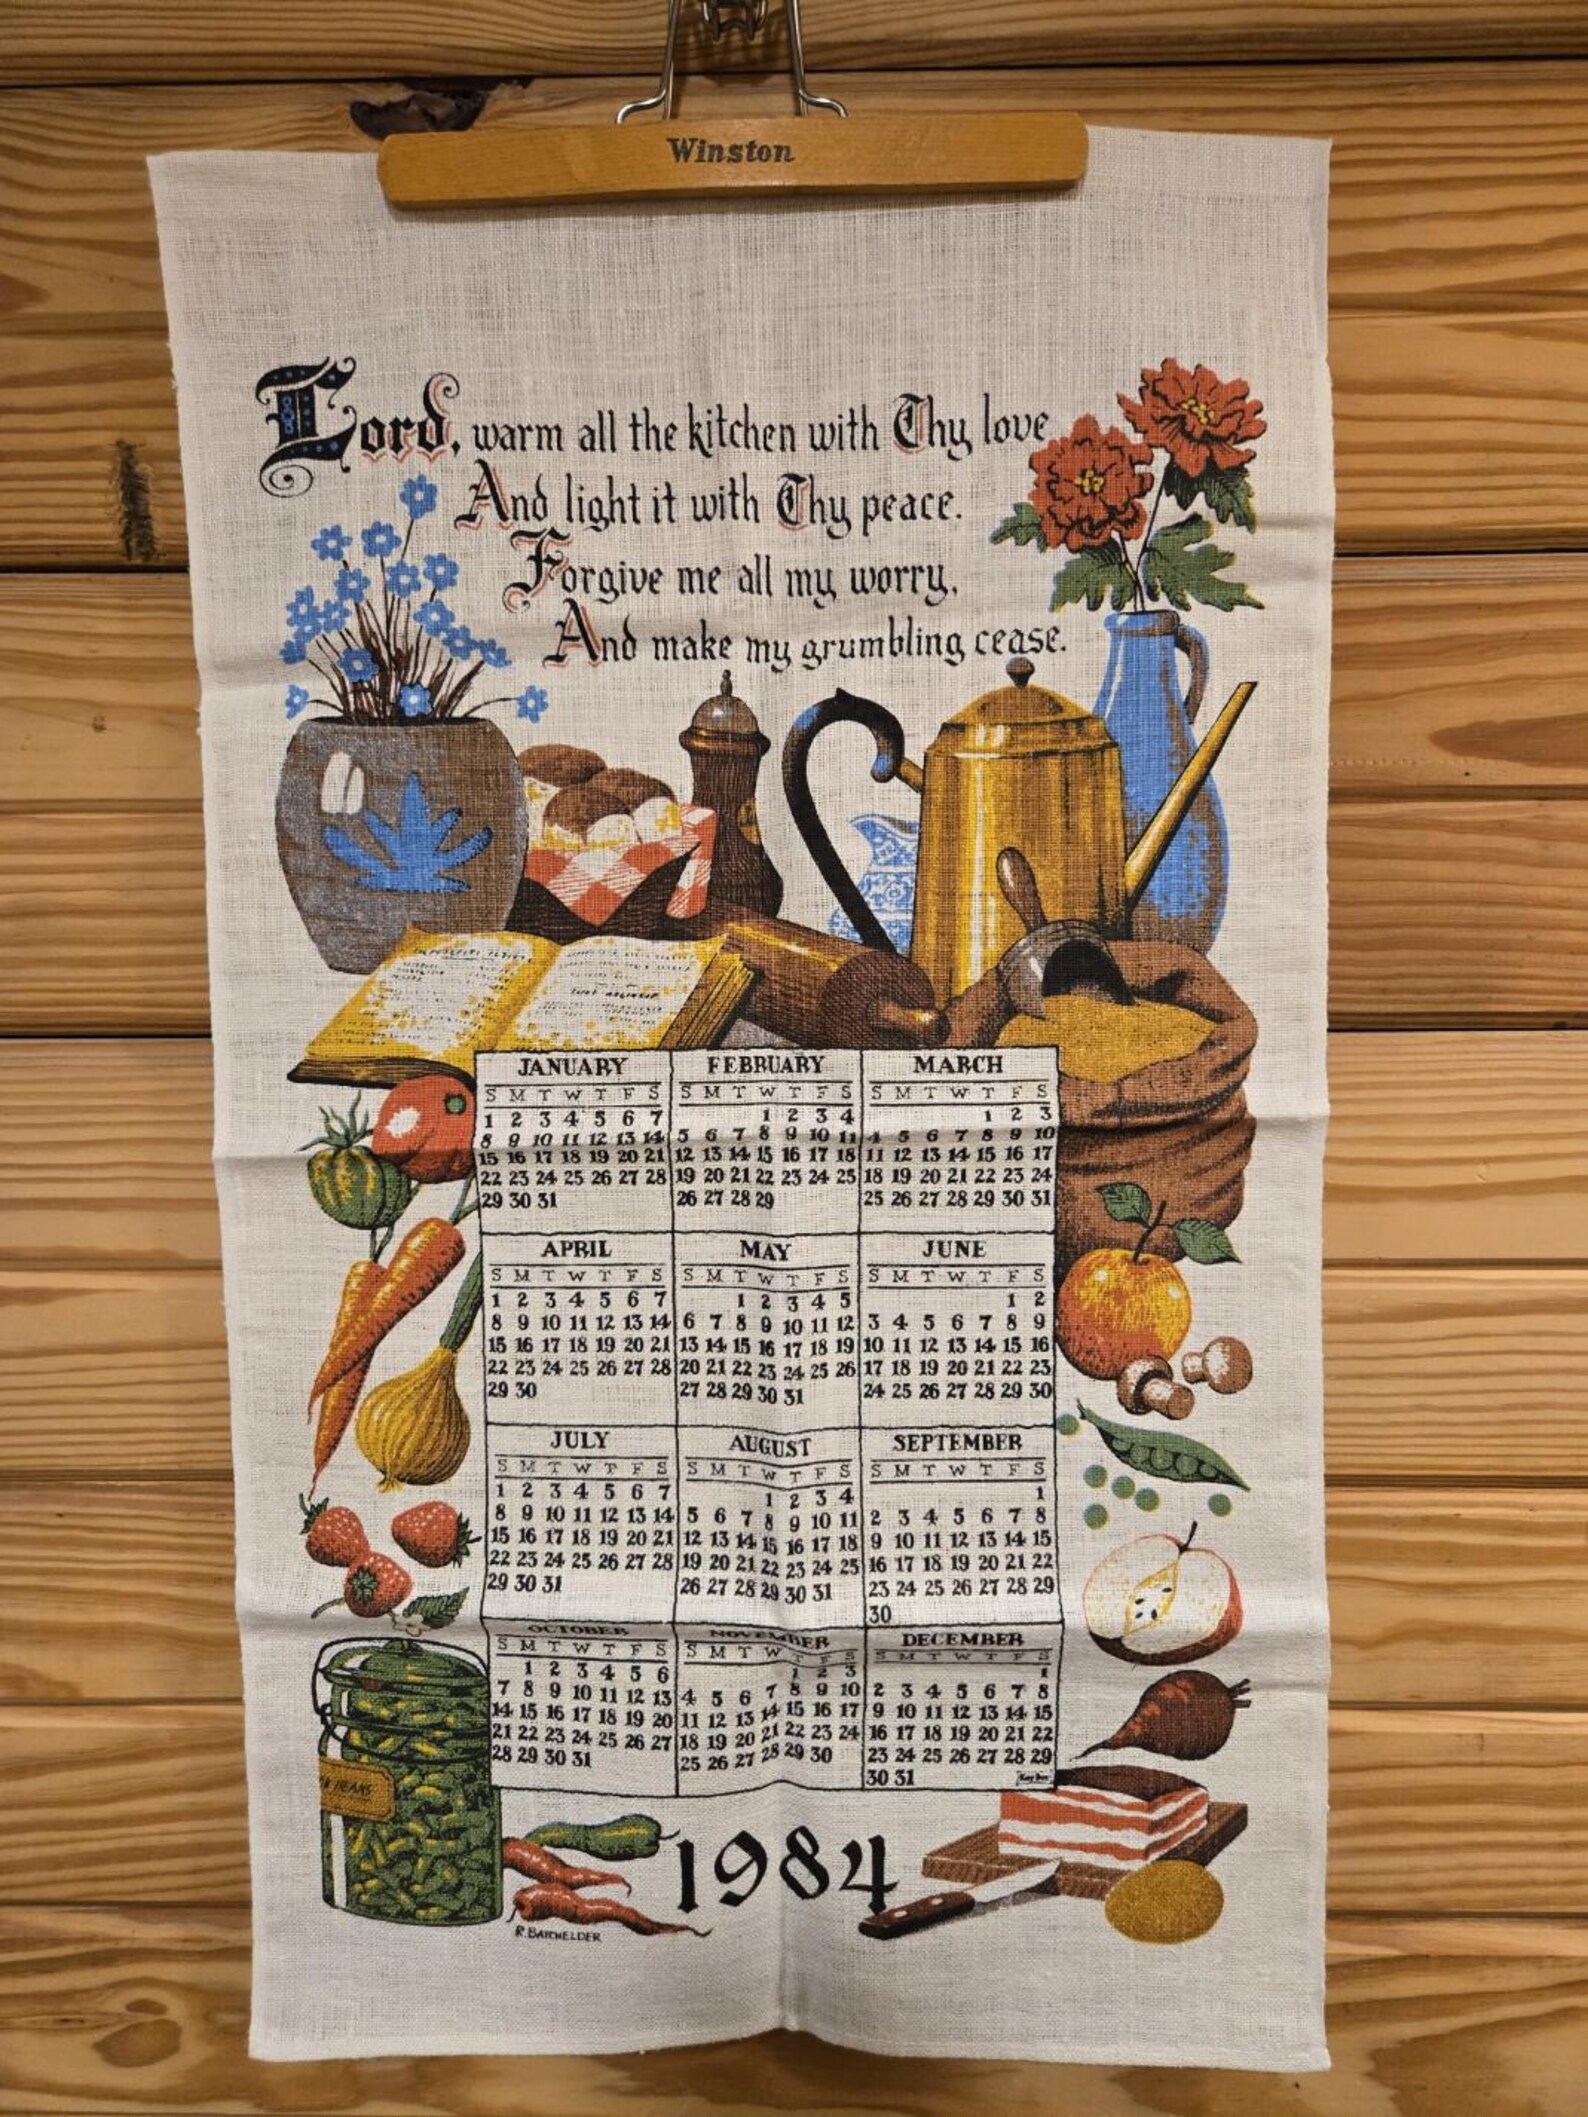 Winston
Lord, warm all the kitchen with Thy love
And light it with Thy peace.
Forgive me all my worry,
And make my grumbling cease.
JANUARY
S M T W T F S
1 2 3 4 5 6 7
8 9 10 11 12 13 14
15 16 17 18 19 20 21
22 23 24 25 26 27 28
29 30 31
FEBRUARY
S M T W T F S
1 2 3 4
5 6 7 8 9 10 11
12 13 14 15 16 17 18
19 20 21 22 23 24 25
26 27 28 29
MARCH
S M T W T F S
1 2 3
4 5 6 7 8 9 10
11 12 13 14 15 16 17
18 19 20 21 22 23 24
25 26 27 28 29 30 31
APRIL
S M T W T F S
1 2 3 4 5 6 7
8 9 10 11 12 13 14
15 16 17 18 19 20 21
22 23 24 25 26 27 28
29 30
MAY
S M T W T F S
1 2 3 4 5
6 7 8 9 10 11 12
13 14 15 16 17 18 19
20 21 22 23 24 25 26
27 28 29 30 31
JUNE
S M T W T F S
1 2
3 4 5 6 7 8 9
10 11 12 13 14 15 16
17 18 19 20 21 22 23
24 25 26 27 28 29 30
JULY
S M T W T F S
1 2 3 4 5 6 7
8 9 10 11 12 13 14
15 16 17 18 19 20 21
22 23 24 25 26 27 28
29 30 31
AUGUST
S M T W T F S
1 2 3 4
5 6 7 8 9 10 11
12 13 14 15 16 17 18
19 20 21 22 23 24 25
26 27 28 29 30 31
SEPTEMBER
S M T W T F S
1
2 3 4 5 6 7 8
9 10 11 12 13 14 15
16 17 18 19 20 21 22
23 24 25 26 27 28 29
30
OCTOBER
S M T W T F S
1 2 3 4 5 6
7 8 9 10 11 12 13
14 15 16 17 18 19 20
21 22 23 24 25 26 27
28 29 30 31
NOVEMBER
S M T W T F S
1 2 3
4 5 6 7 8 9 10
11 12 13 14 15 16 17
18 19 20 21 22 23 24
25 26 27 28 29 30
DECEMBER
S M T W T F S
1
2 3 4 5 6 7 8
9 10 11 12 13 14 15
16 17 18 19 20 21 22
23 24 25 26 27 28 29
30 31
BEANS
1984
R. BATCHELDER